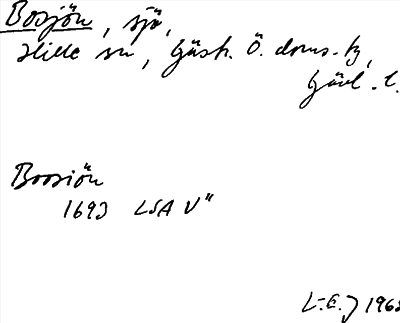 Bosjön, sjö,
Hille sn, Gästr. Ö. doms. tg,
Gävl. l.
Boosiön
1693 LSA V"
L.E.J 1963